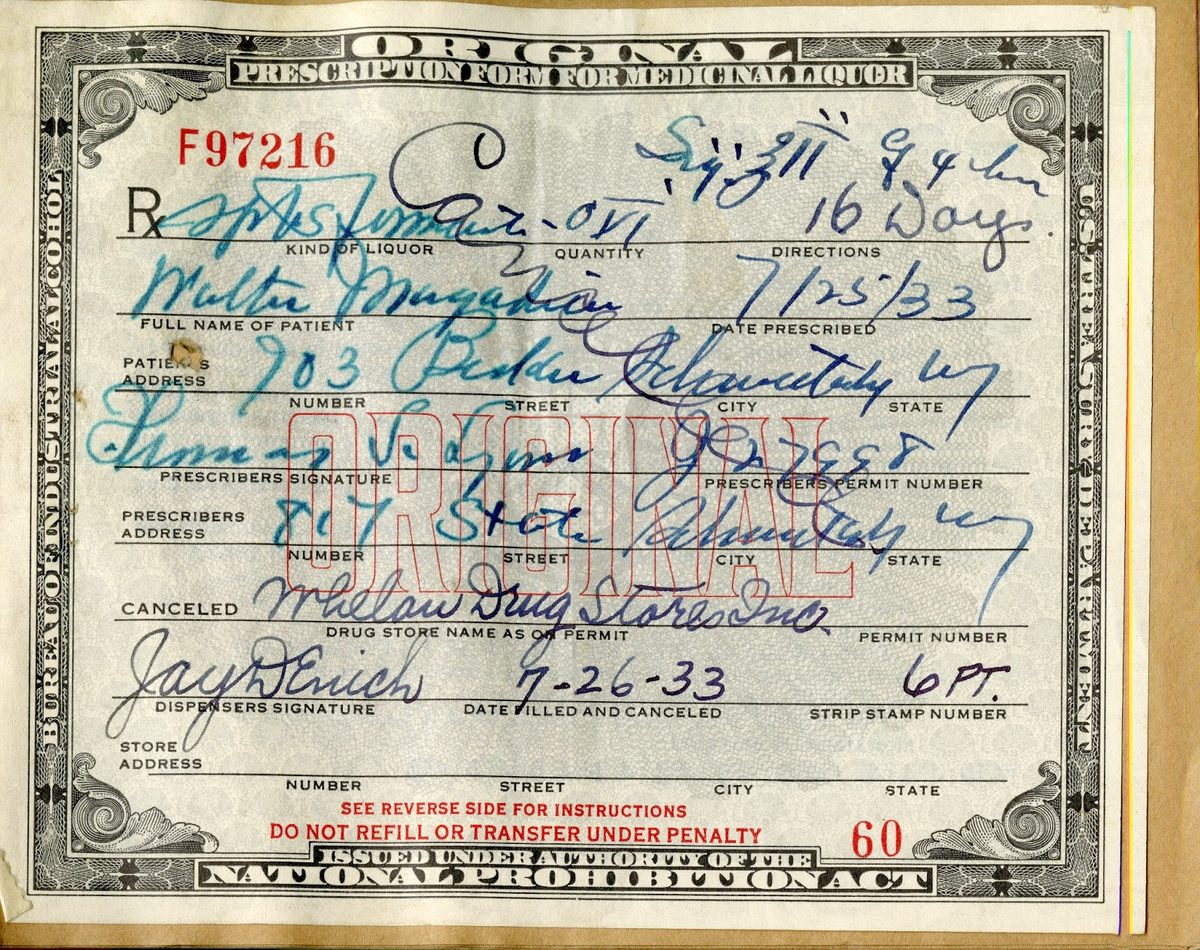 ORIGINAL
PRESCRIPTION FORM FOR MEDICINAL LIQUOR
F97216
Rx
16 Days.
KIND OF LIQUOR QUANTITY DIRECTIONS
Walter 7/25/33
FULL NAME OF PATIENT DATE PRESCRIBED
PATIENTS ADDRESS 903 Schenectady NY
NUMBER STREET CITY STATE
Thomas
PRESCRIBERS SIGNATURE PRESCRIBERS PERMIT NUMBER
ORIGINAL
PRESCRIBERS ADDRESS 817 State Schenectady NY
NUMBER STREET CITY STATE
CANCELED Whelan Drug Stores Inc.
DRUG STORE NAME AS ON PERMIT PERMIT NUMBER
Jay D 7-26-33 6 PT.
DISPENSERS SIGNATURE DATE FILLED AND CANCELED STRIP STAMP NUMBER
STORE ADDRESS
NUMBER STREET CITY STATE
SEE REVERSE SIDE FOR INSTRUCTIONS
DO NOT REFILL OR TRANSFER UNDER PENALTY
60
ISSUED UNDER AUTHORITY OF THE
NATIONAL PROHIBITION ACT
BUREAU OF INDUSTRIAL ALCOHOL
U.S. TREAS. DEPARTMENT